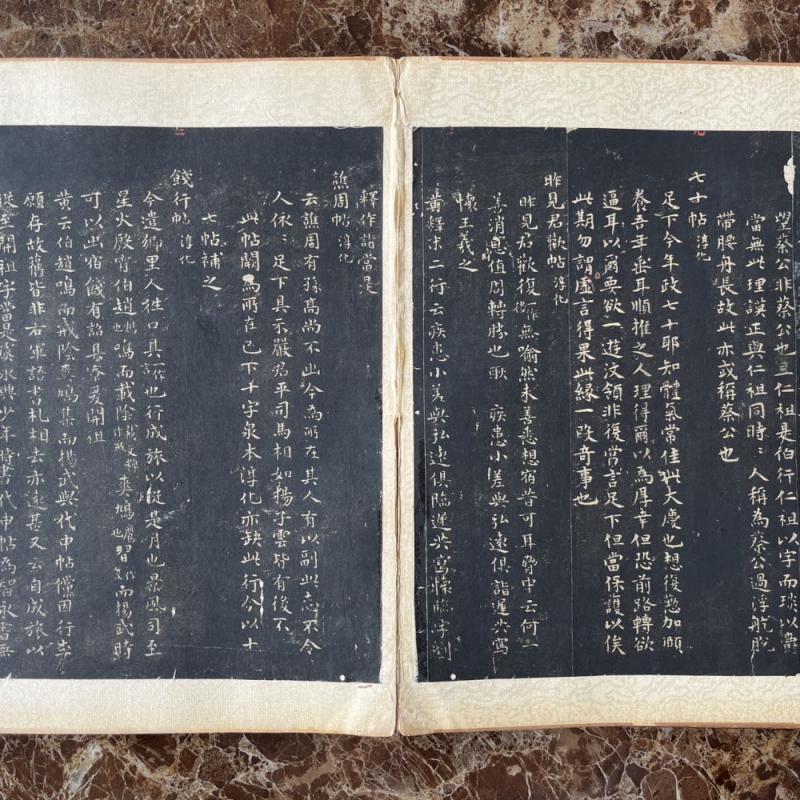 望蔡公非蔡公也云仁祖是伯行仁祖以字而琰以諱
當無此理謨正與仁祖同時人稱為蔡公過浮航脫
帶腰舟長故此亦或稱蔡公也
七十帖 淳化
足下今年政七十耶知體氣常佳此大慶也想復懃加頤
養吾年垂耳順推之人理得爾以為厚幸但恐前路轉欲
逼耳以爾要欲一遊汶領非復常言足下但當保護以俟
此期勿謂虛言得果此緣一段奇事也
昨見君歡帖 淳化
昨見君歡復 無喻然未善悉想宿昔可耳 中云何一
善消息值周轉勝也耿 疾患小差與弘遠俱詣遲共寫
懷王羲之
黃釋末二行云疾患小差與弘遠俱臨遲共寫懷 字刻
釋作詣當是
譙周帖 淳化
云譙周有孫高尚不出今為所在其人有以副此志不令
人依依足下具示嚴君平司馬相如揚子雲皆有後不
此帖闕為所在已下十字泉本淳化亦缺此行今以十
七帖補之
餞行帖 淳化
今遣鄉里人往口具 也行成旅以從是月也景風司至
星火殷宵伯趙 鳴而戒陰 爽鳩 習 而揚武時
可以出宿餞有詔 爰開祖
黃云伯趙鳴而戒陰爽鳩集而揚武與代申帖儻因行李
願存故舊皆非右軍語書札相去亦遠甚又云自成旅以
從至開祖字當是 永興少年時書代申帖為智永書無